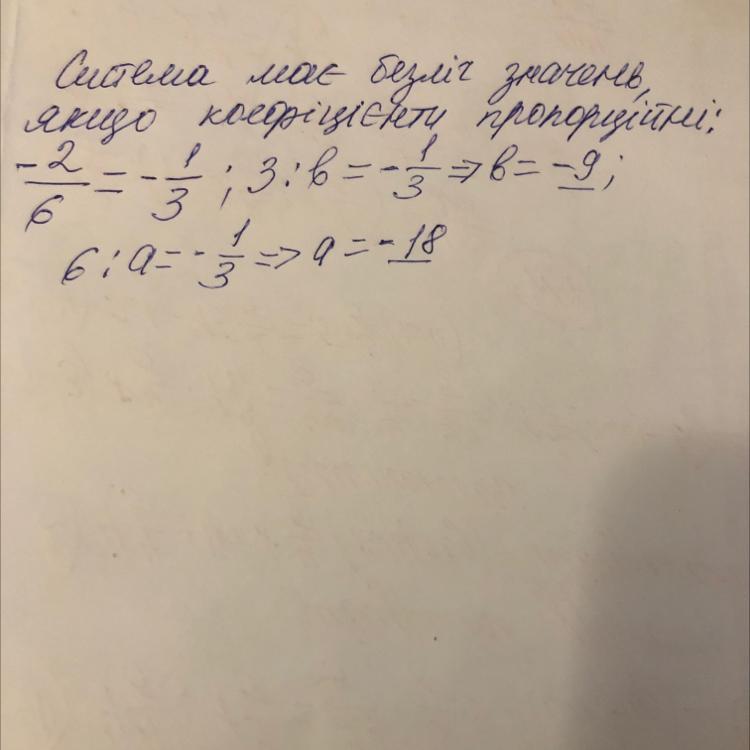 Система має безліч значень,
якщо коефіцієнти пропорційні:
-2/6 = -1/3 ; 3 : в = -1/3 => в = -9 ;
6 : а = -1/3 => а = -18